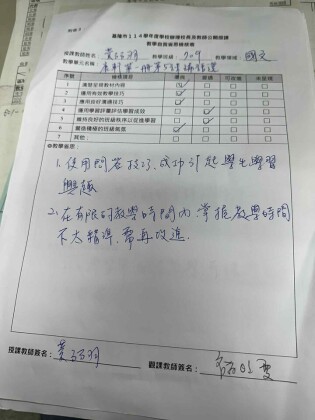 附表3
基隆市114學年度學校辦理校長及教師公開授課
教學自我省思檢核表
授課教師姓名: 教學班級: 709 教學領域: 國文
教學單元名稱:
序號 檢核項目 優良 普通 可改進 未呈現
1 清楚呈現教材內容
2 運用有效教學技巧
3 應用良好溝通技巧
4 運用學習評量評估學習成效
5 維持良好的班級秩序以促進學習
6 營造積極的班級氣氛
7 其他:
◎教學省思:
1. 使用問答技巧,成功引起學生學習
興趣
2. 在有限的教學時間內掌握教學時間
不太精準,需再改進.
授課教師簽名:
觀課教師簽名: